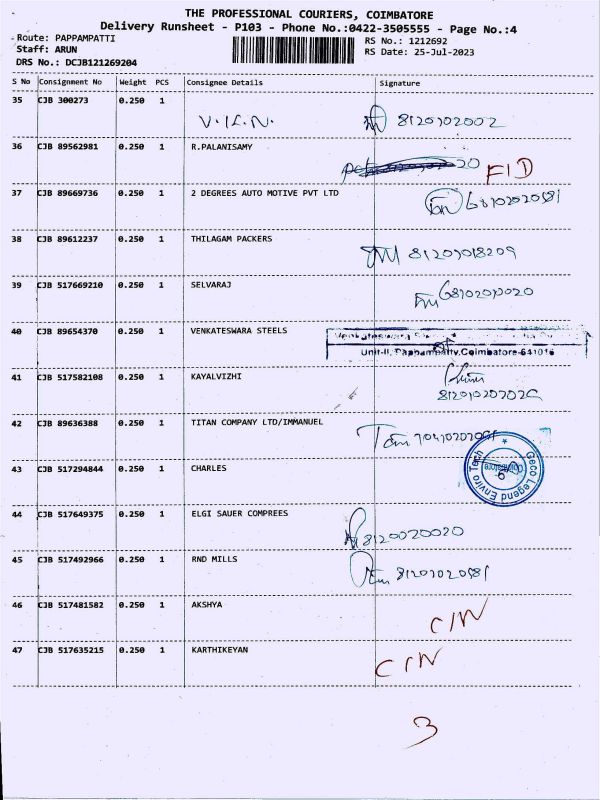 THE PROFESSIONAL COURIERS, COIMBATORE
Delivery Runsheet - P103 - Phone No.:0422-3505555 - Page No.:4
Route: PAPPAMPATTI RS No.: 1212692
Staff: ARUN RS Date: 25-Jul-2023
DRS No.: DCJB121269204
S No Consignment No Weight PCS Consignee Details Signature
35 CJB 300273 0.250 1
V.I.N. 8120102002
36 CJB 89562981 0.250 1 R.PALANISAMY
20 FID
37 CJB 89669736 0.250 1 2 DEGREES AUTO MOTIVE PVT LTD
38 CJB 89612237 0.250 1 THILAGAM PACKERS
39 CJB 517669210 0.250 1 SELVARAJ
40 CJB 89654370 0.250 1 VENKATESWARA STEELS
Unit-II, Pappampatty, Coimbatore-641016
41 CJB 517582108 0.250 1 KAYALVIZHI
42 CJB 89636388 0.250 1 TITAN COMPANY LTD/IMMANUEL
43 CJB 517294844 0.250 1 CHARLES
Geco Legend Enviro Tech
Coimbatore
44 CJB 517649375 0.250 1 ELGI SAUER COMPREES
8120020020
45 CJB 517492966 0.250 1 RND MILLS
46 CJB 517481582 0.250 1 AKSHYA
CIN
47 CJB 517635215 0.250 1 KARTHIKEYAN
CIN
3